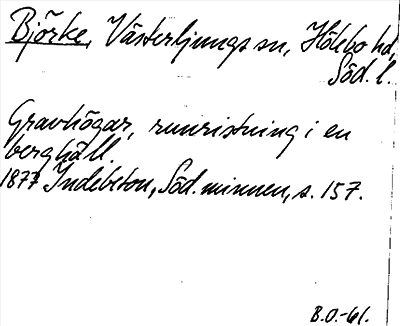 Björke, Västerljungs sn, Hölebo hd,
Söd. l.
Gravhögar, runristning i en
berghäll.
1877 Indebetou, Söd. minnen, s. 157.
B.O.-61.